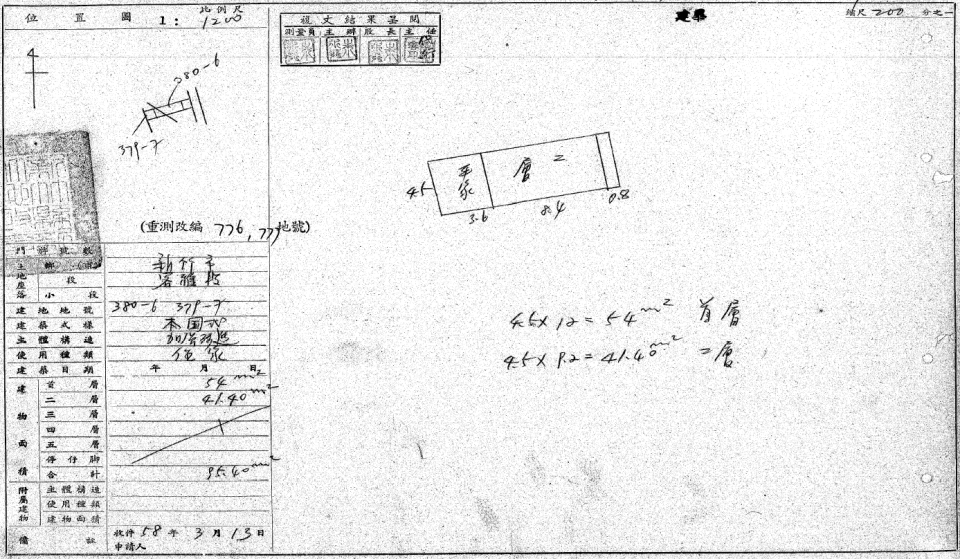 位置圖 比例尺 1:1200
4
380-6
379-7
(重測改編 776,777地號)
門牌號數
土地座落 鄉
新竹市
段
客雅段
小段
建地地號 380-6 379-7
建築式樣 本国式
主體構造 加強磚造
使用種類 住家
建築日期 年 月 日
建物面積
首層 54m²
二層 41.40m²
三層
四層
五層
停仔脚
合計 95.40m²
附屬建物
主體構造
使用種類
建物面積
備註
收件 58年3月13日
申請人
複丈結果呈閱
測量員 主辦 股長 主任
建築
縮尺 200 分之一
平家
層二
4.5
3.6
8.4
0.8
4.5×12=54m² 首層
4.5×9.2=41.40m² 二層